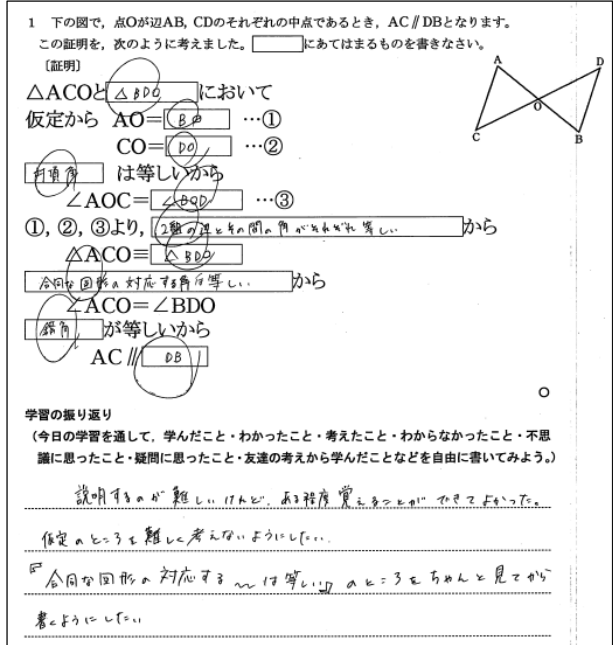 1 下の図で,点Oが辺AB, CDのそれぞれの中点であるとき,AC∥DBとなります。
この証明を,次のように考えました。 にあてはまるものを書きなさい。
〔証明〕
△ACOと△BDOにおいて
仮定から AO=BO …①
CO=DO …②
対頂角 は等しいから
∠AOC=∠BOD …③
①,②,③より,2組の辺とその間の角がそれぞれ等しいから
△ACO≡△BDO
合同な図形の対応する角は等しいから
∠ACO=∠BDO
錯角が等しいから
AC∥DB
A
D
O
C
B
学習の振り返り
(今日の学習を通して,学んだこと・わかったこと・考えたこと・わからなかったこと・不思
議に思ったこと・疑問に思ったこと・友達の考えから学んだことなどを自由に書いてみよう。)
説明するのが難しいけれど、ある程度覚えることができてよかった。
仮定のところを難しく考えないようにしたい。
『合同な図形の対応する〜は等しい』のところをちゃんと見てから
書くようにしたい